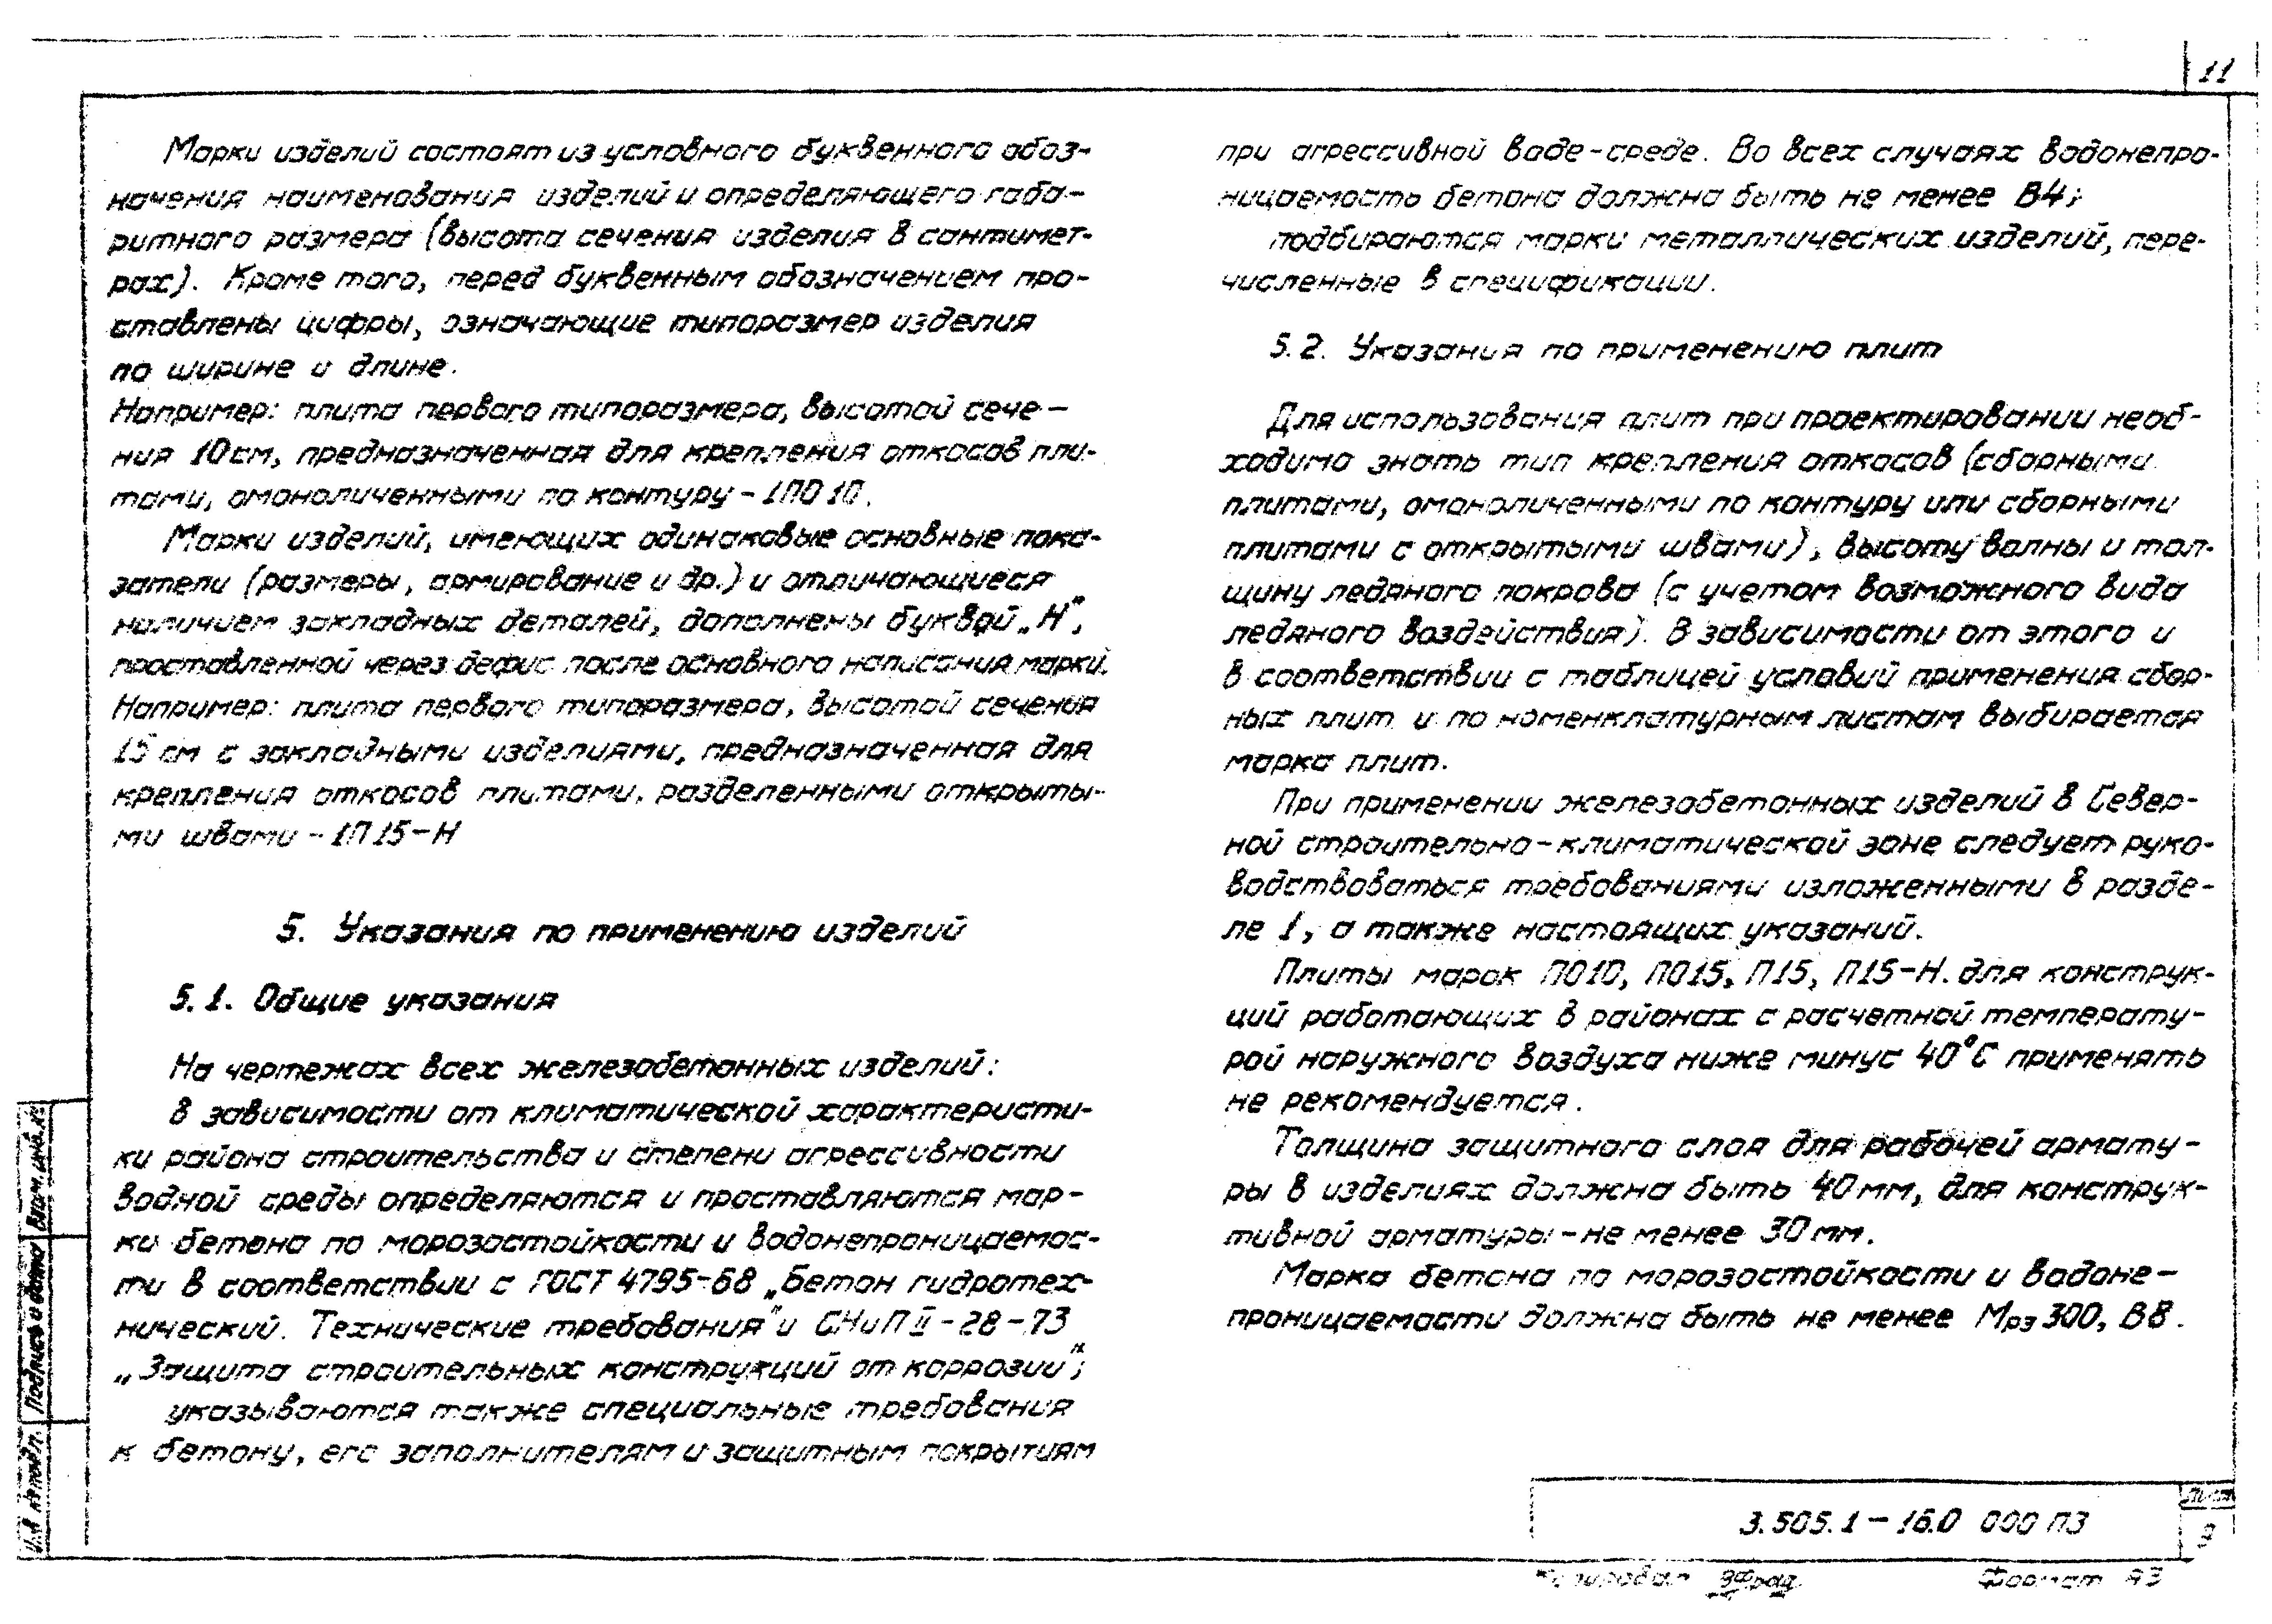 11
Марки изделий состоят из условного буквенного обоз-
начения наименования изделий и определяющего габа-
ритного размера (высота сечения изделия в сантимет-
рах). Кроме того, перед буквенным обозначением про-
ставлены цифры, означающие типоразмер изделия
по ширине и длине.
Например: плита первого типоразмера, высотой сече-
ния 10см, предназначенная для крепления откосов пли-
тами, омоноличенными по контуру - 1ПО10.
Марки изделий, имеющих одинаковые основные пока-
затели (размеры, армирование и др.) и отличающиеся
наличием закладных деталей, дополнены буквой „Н",
проставленной через дефис после основного написания марки.
Например: плита первого типоразмера, высотой сечения
15 см с закладными изделиями, предназначенная для
крепления откосов плитами, разделенными открыты-
ми швами - 1П15-Н
5. Указания по применению изделий
5.1. Общие указания
На чертежах всех железобетонных изделий:
в зависимости от климатической характеристи-
ки района строительства и степени агрессивности
водной среды определяются и проставляются мар-
ки бетона по морозостойкости и водонепроницаемос-
ти в соответствии с ГОСТ 4795-68 „Бетон гидротех-
нический. Технические требования" и СНиП II-28-73
„Защита строительных конструкций от коррозии";
указываются также специальные требования
к бетону, его заполнителям и защитным покрытиям
при агрессивной воде-среде. Во всех случаях водонепро-
ницаемость бетона должна быть не менее В4;
подбираются марки металлических изделий, пере-
численные в спецификации.
5.2. Указания по применению плит
Для использования плит при проектировании необ-
ходимо знать тип крепления откосов (сборными
плитами, омоноличенными по контуру или сборными
плитами с открытыми швами), высоту волны и тол-
щину ледяного покрова (с учетом возможного вида
ледяного воздействия). В зависимости от этого и
в соответствии с таблицей условий применения сбор-
ных плит и по номенклатурным листам выбирается
марка плит.
При применении железобетонных изделий в Север-
ной строительно-климатической зоне следует руко-
водствоваться требованиями изложенными в разде-
ле 1, а также настоящих указаний.
Плиты марок ПО10, ПО15, П15, П15-Н. для конструк-
ций работающих в районах с расчетной температу-
рой наружного воздуха ниже минус 40°С применять
не рекомендуется.
Толщина защитного слоя для рабочей армату-
ры в изделиях должна быть 40мм, для конструк-
тивной арматуры - не менее 30мм.
Марка бетона по морозостойкости и водоне-
проницаемости должна быть не менее Мрз 300, В8.
Взам. инв. №
Подпись и дата
Инв. № подл.
3.505.1-16.0 000 ПЗ
Лист
9
Копировал
Формат А3